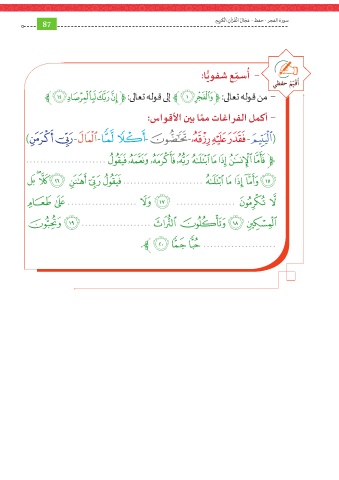 سورة الفجر - حفظ - مجال القرآن الكريم
87
أقيّم حفظي
- أسمّع شفويًّا:
- من قوله تعالى: ﴿ وَٱلْفَجْرِ ١ ﴾ إلى قوله تعالى: ﴿ إِنَّ رَبَّكَ لَبِٱلْمِرْصَادِ ١٤ ﴾
- أكمل الفراغات ممّا بين الأقواس:
(ٱلْيَتِيمَ - فَقَدَرَ عَلَيْهِ رِزْقَهُۥ - تَحَٰٓضُّونَ - أَكْلًا لَّمًّا - ٱلْمَالَ - رَبِّىٓ أَكْرَمَنِ)
﴿ فَأَمَّا ٱلْإِنسَٰنُ إِذَا مَا ٱبْتَلَىٰهُ رَبُّهُۥ فَأَكْرَمَهُۥ وَنَعَّمَهُۥ فَيَقُولُ ....................
١٥ وَأَمَّآ إِذَا مَا ٱبْتَلَىٰهُ .................... فَيَقُولُ رَبِّىٓ أَهَٰنَنِ ١٦ كَلَّا ۖ بَل
لَّا تُكْرِمُونَ .................... ١٧ وَلَا .................... عَلَىٰ طَعَامِ
ٱلْمِسْكِينِ ١٨ وَتَأْكُلُونَ ٱلتُّرَاثَ .................... ١٩ وَتُحِبُّونَ
.................... حُبًّا جَمًّا ٢٠ ﴾.